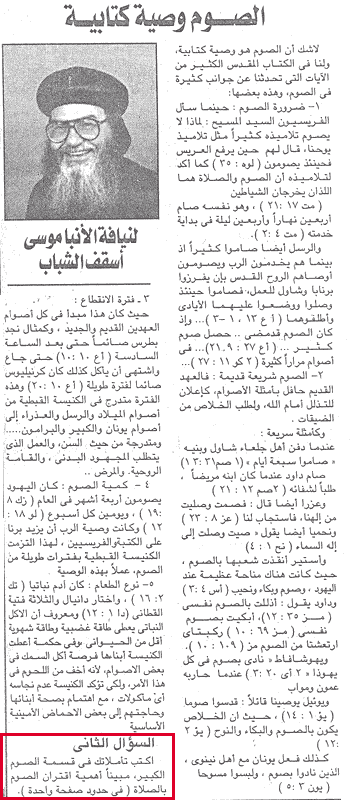 الصوم وصية كتابية
لاشك أن الصوم هو وصية كتابية،
ولنا فى الكتاب المقدس الكثير من
الآيات التى تحدثنا عن جوانب كثيرة
فى الصوم، وهذه بعضها:
١- ضرورة الصوم: حينما سئل
الفريسيون السيد المسيح: لماذا لا
يصوم تلاميذه كثيراً مثل تلاميذ
يوحنا، قال لهم حين يرفع العريس
فحينئذ يصومون (لو٥: ٣٥) كما أكد
لتلاميذه أن الصوم والصلاة هما
اللذان يخرجان الشياطين
(مت ١٧: ٢١) ، وهو نفسه صام
أربعين نهاراً وأربعين ليلة فى بداية
خدمته (مت ٤: ٢).
والرسل أيضا صاموا كثيراً اذ
بينما هم يخدمون الرب ويصومون
أوصاهم الروح القدس بإن يفرزوا
برنابا وشاول للعمل، فصاموا حينئذ
وصلوا ووضعوا عليهما الأيادى
وأطلقوهما (أع ١٣، ١ -٣) ... وإذ
كان الصوم قدمضى .. حصل صوم
كثير ... (أع ٢٧: ٩،٢١) .. فى
أصوام مراراً كثيرة (٢ كو ١١: ٢٧) ...
٢- الصوم شريعة قديمة: فالعهد
القديم حافل بأمثلة الأصوام، كإعلان
للتذلل أمام الله، ولطلب الخلاص من
الضيقات .
وكأمثلة سريعة:
عندما دفن أهل جلعاد شاول وبنيه
« صاموا سبعة أيام » (١ صم٣١: ١٣)
صام داود عندما كان ابنه مريضاً ،
طلباً لشفائه (٢صم ١٢: ٢١)
وعزرا أيضا قال: فصمت وصليت
من إلهنا، فاستجاب لنا (عز ٨: ٢٣)
ونحميا أيضا يقول « صيت وصلت إلى
إله السماء (نح ١: ٤)
وأستير أنقذت شعبها بالصوم ،
حيث كانت هناك مناحة عظيمة عند
اليهود ، وصوم وبكاء ونحيب (أس ٤: ٣)
وداود يقول: أذللت بالصوم نفسى
(مز ٣٥: ١٢)، أبكيت بصوم
نفسى (مز ٦٩: ١٠) ركبتاى
ارتعشتا من الصوم (مز ١٠٩: ١٠).
ويهوشافاط « نادى بصوم فى كل
يهوذا » ٢ أى ٢٠: ٣) عندما حاربه
عمون ومواب
ويوئيل يوصينا قائلاً: قدسوا صوما
(يؤ ١: ١٤) ، حيث ان الخلاص
يكون بالصوم والبكاء والنوح (يؤ ٢:
١٢)
كذلك فعل يونان مع أهل نينوى ،
الذين نادوا بصوم ، ولبسوا مسوحا
( يون ٣: ٥)
لنيافة الأنبا موسى
أسقف الشباب
٣- فترة الانقطاع:
حيث كان هذا مبدأ فى كل أصوام
العهدين القديم والجديد ، وكمثال نجد
بطرس صائماً حتى بعد الساعة
السادسة (أع ١٠: ١٠) حتى جاع
واشتهى أن يأكل كذلك كان كرنيليوس
صائما لفترة طويلة (أع ١٠: ٢٠) وهذه
الفترة متدرجة فى الكنيسة القبطية من
أصوام الميلاد والرسل والعذراء إلى
أصوام يونان والكبير والبرامون....
ومتدرجة من حيث السن، والعمل الذى
يتطلب المجهود البدنى ، والقامة
الروحية. والمرض ..
٤ - كمية الصوم: كان اليهود
يصومون أربعة أشهر فى العام (زك ٨
: ١٩) ، ويومين كل أسبوع (لو ١٨:
١٢) وكانت وصية الرب أن يزيد برنا
على الكتبة والفريسيين ، لهذا التزمت
الكنيسة القبطية بفترات طويلة من
الصوم، عملاً بهذه الوصية
٥- نوع الطعام: كان آدم نباتيا (تك
٢: ١٦) ، واختار دانيال والثلاثة فتية
القطانى (دا ١: ١٢) ومعروف أن الاكل
النباتى يعطى طاقة غضبية وطاقة شهوية
أقل من الحيوانى ،وفى حكمة أعطت
الكنيسة أبناها فرصة أكل السمك فى
بعض الاصوام، لأنه أخف من اللحوم فى
هذا الأمر، ولكى تؤكد الكنيسة عدم نجاسه
أى مأكولات ، مع اهتمام بصحة أبنائها
وحاجتهم إلى بعض الاحماض الأمينية
الأساسية
السؤال الثانى
اكتب تأملاتك فى قسمة الصوم
الكبير، مبيناً أهمية اقتران الصوم
بالصلاة (فى حدود صفحة واحدة).